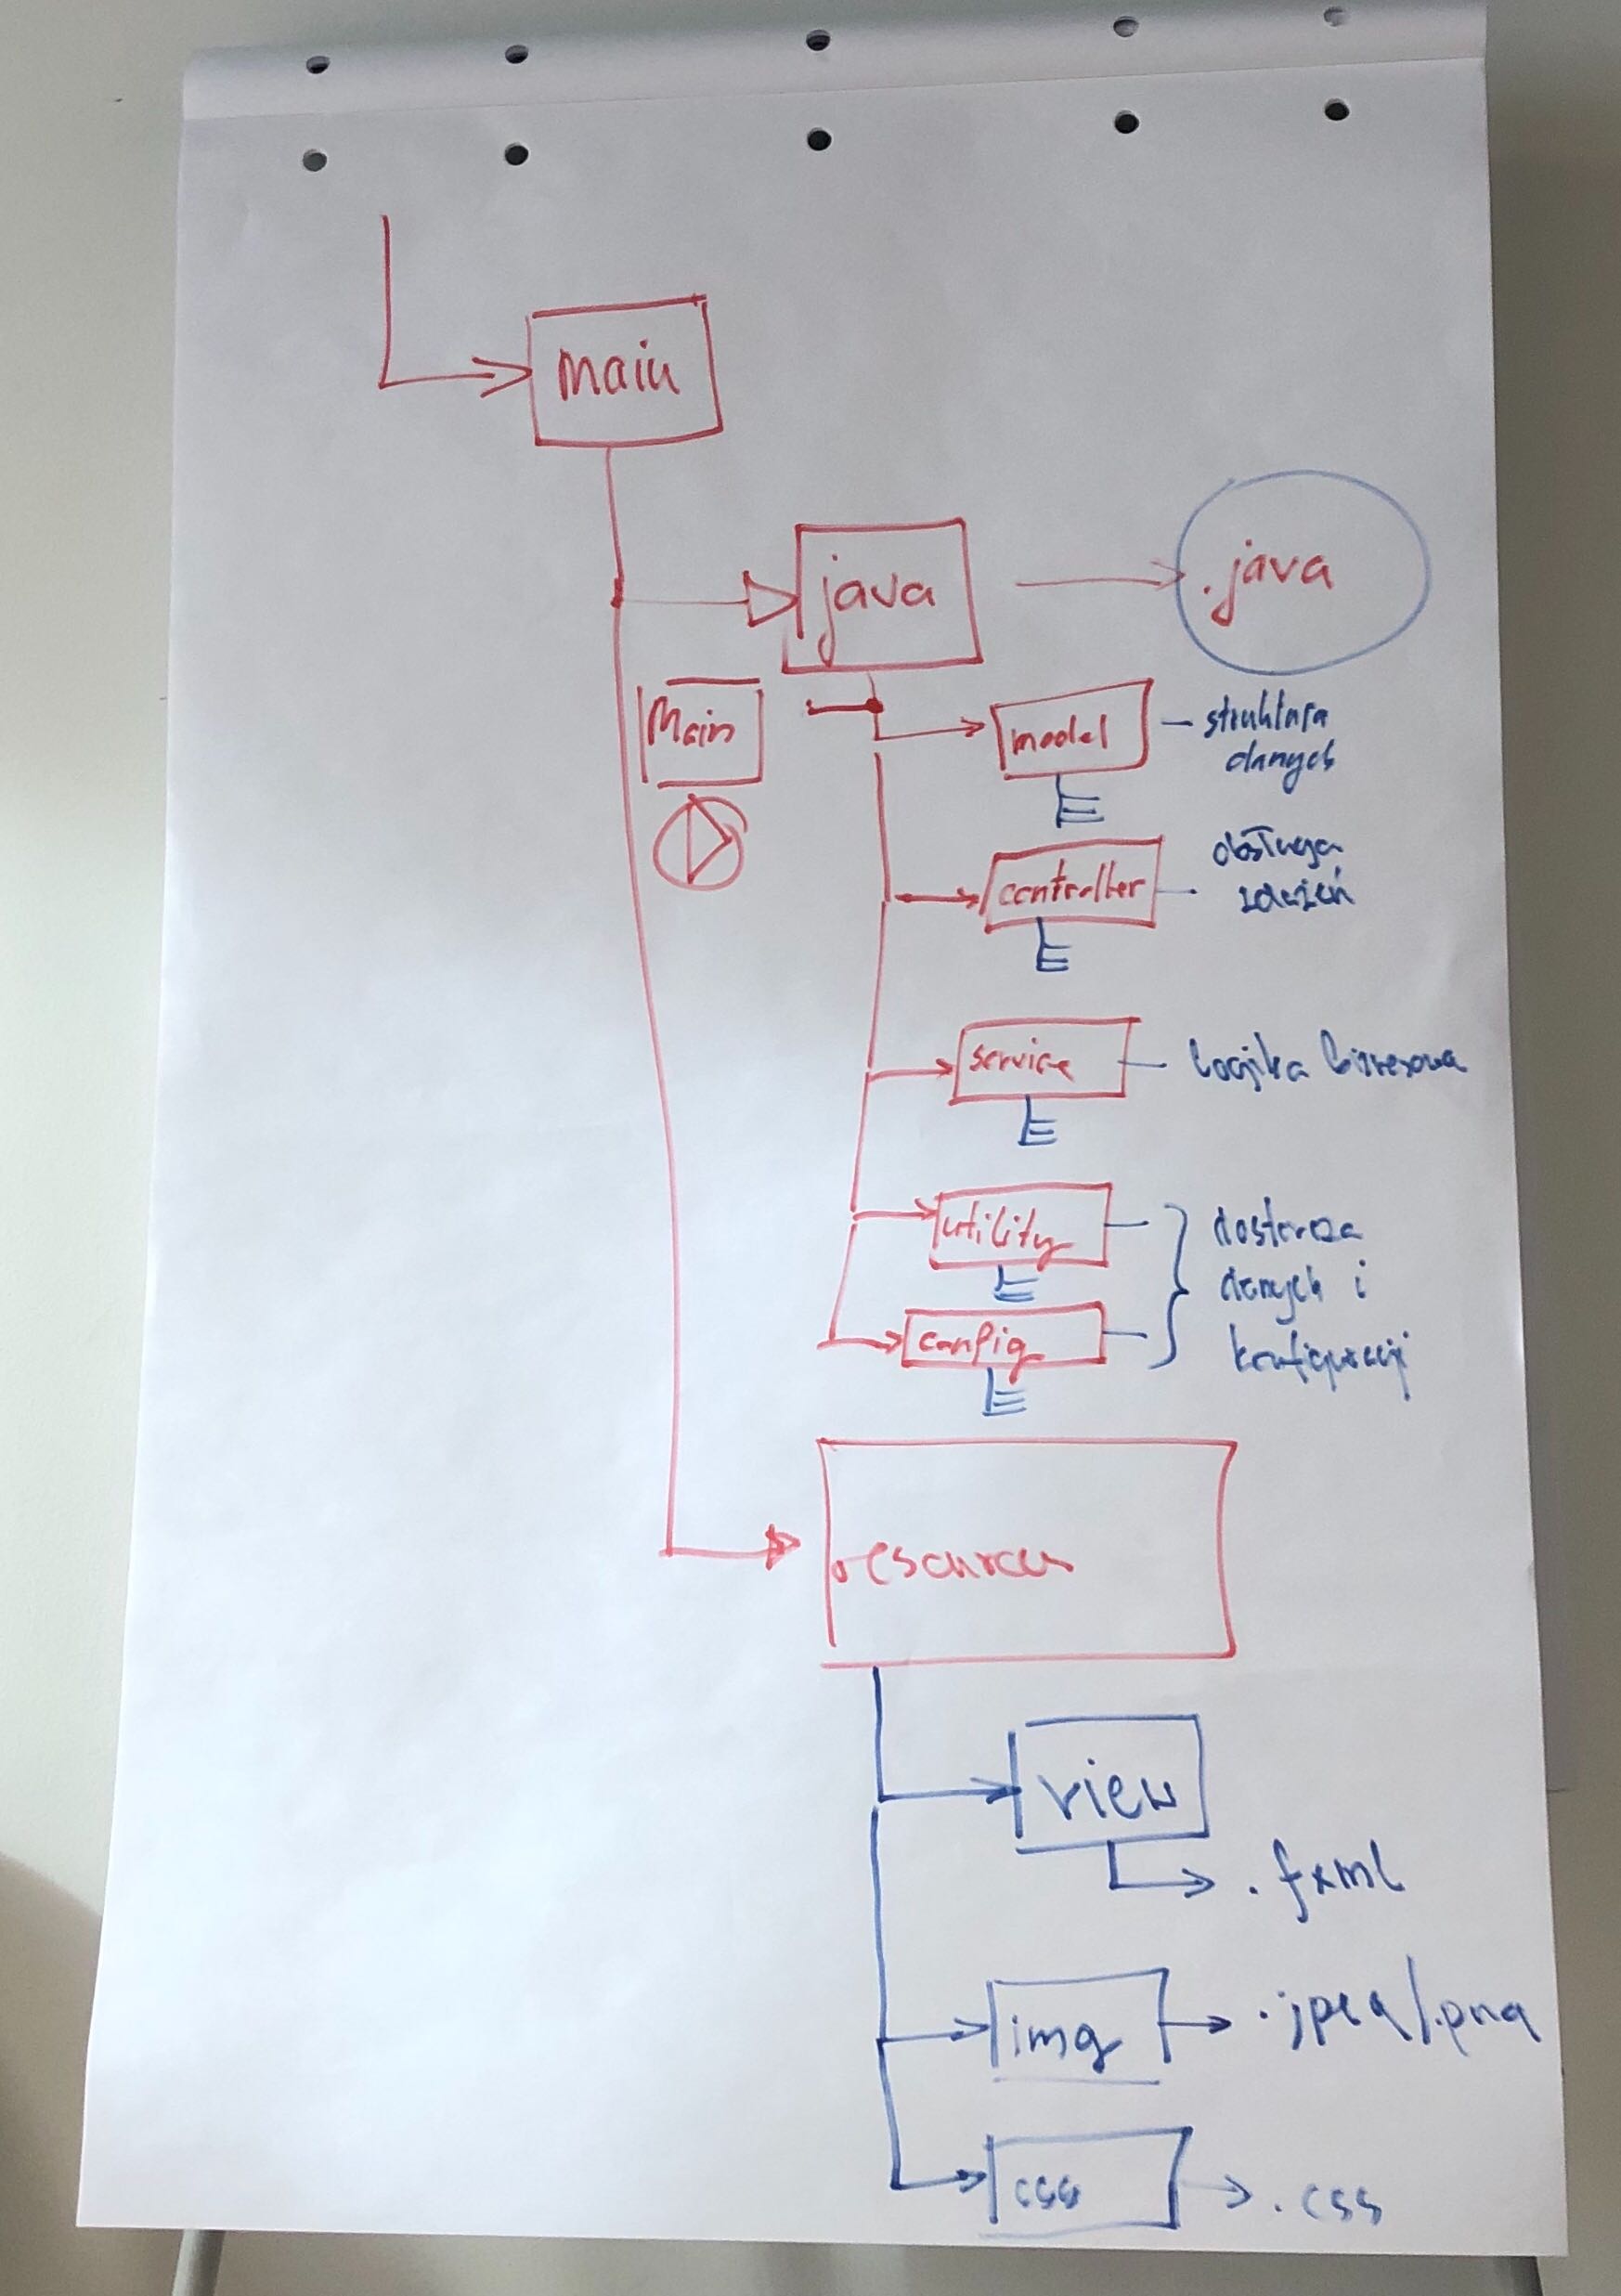 main
java
.java
Main
model
– struktura
danych
controller
obsługa
zdarzeń
service
logika biznesowa
utility
dostarcza
danych i
konfiguracji
config
resources
view
.fxml
img
.jpeg/.png
css
.css